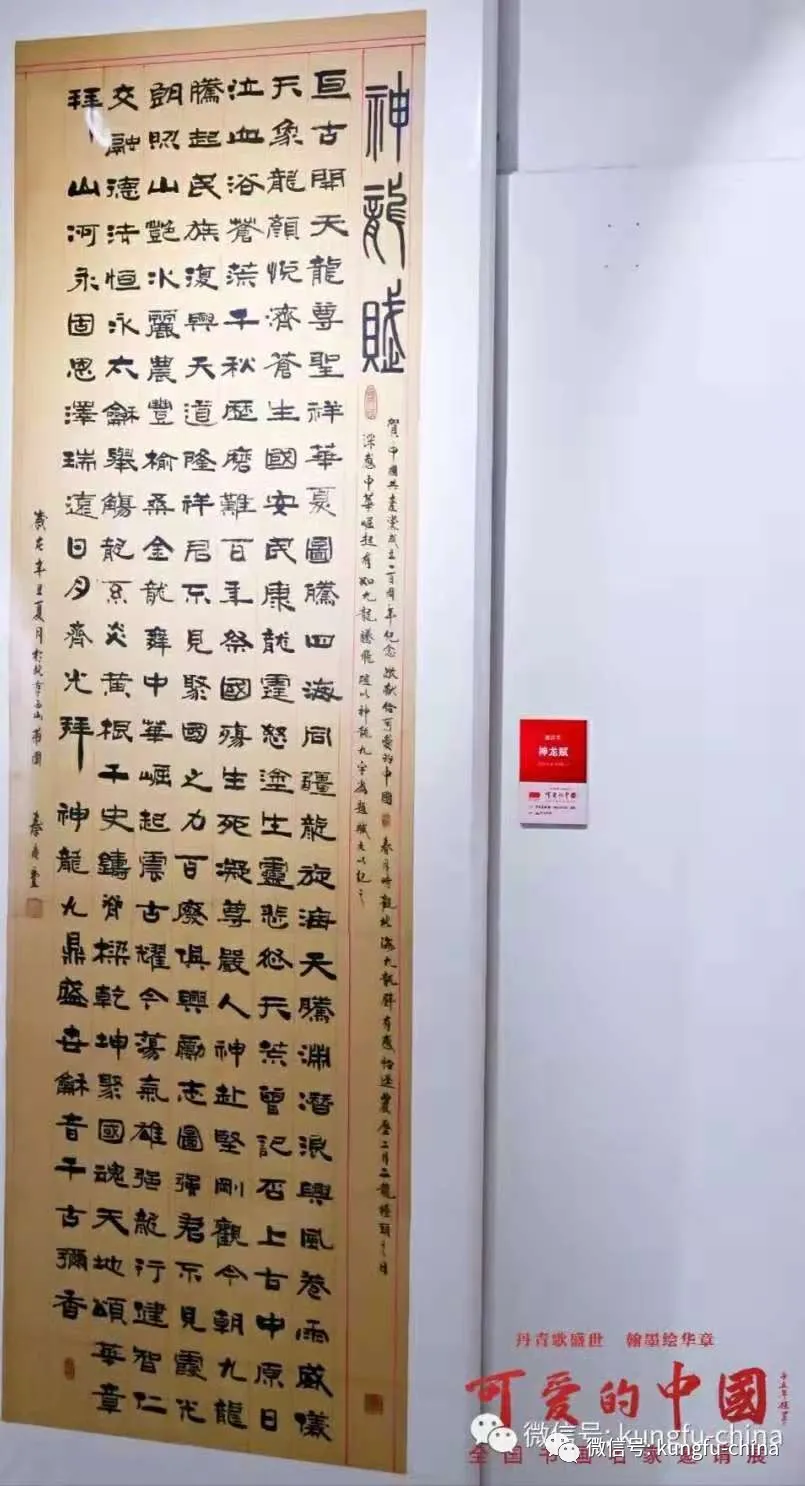 神龍賦
賀中國共產黨成立一百周年紀念敬獻給可愛的中國 春月時觀北海九龍壁有感恰逢農曆二月二龍抬頭之日
深感中華崛起有如九龍騰飛隨以神龍九字為題賦文以記之
亘古開天龍尊聖祥華夏圖騰四海同疆龍旋海天騰淵潛浪興風卷雨威儀
天象龍顏悅濟蒼生國安民康龍靈怒塗生靈悲愁天荒曾記否上古中原日
泣血浴蒼荒千秋歷磨難百年祭國殤生死凝尊嚴人神赴堅剛觀今朝九龍
騰起民族復興天道隆祥君不見聚國之力百廢俱興勵志圖強君不見霞光
朗照山艷水麗農豐榆桑金龍舞中華崛起震古耀今蕩氣雄强龍行健智仁
交融德法恒永太龢舉觴龍系炎黃根千史鑄脊樑乾坤聚國魂天地頌華章
拜山河永固恩澤瑞遠日月齊光拜神龍九鼎盛世龢音千古彌香
歲在辛丑夏月於
神龙赋
可爱的中國
丹青歌盛世 翰墨绘华章
可爱的中國
全国书画名家邀请展
微信号: kungfu-china
微信号: kungfu-china